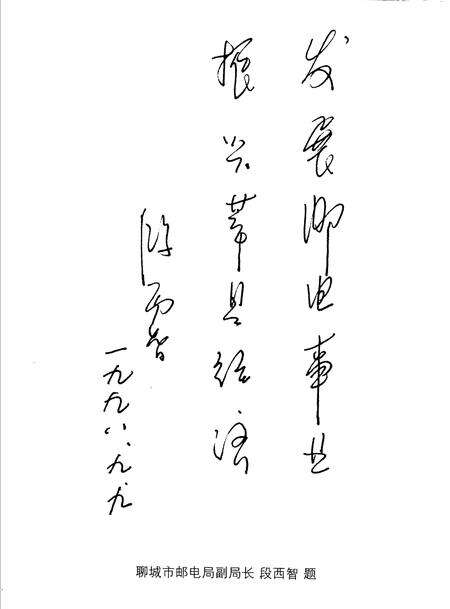 发展邮电事业
振兴莘县经济
段西智
一九九八.九.九
聊城市邮电局副局长 段西智 题